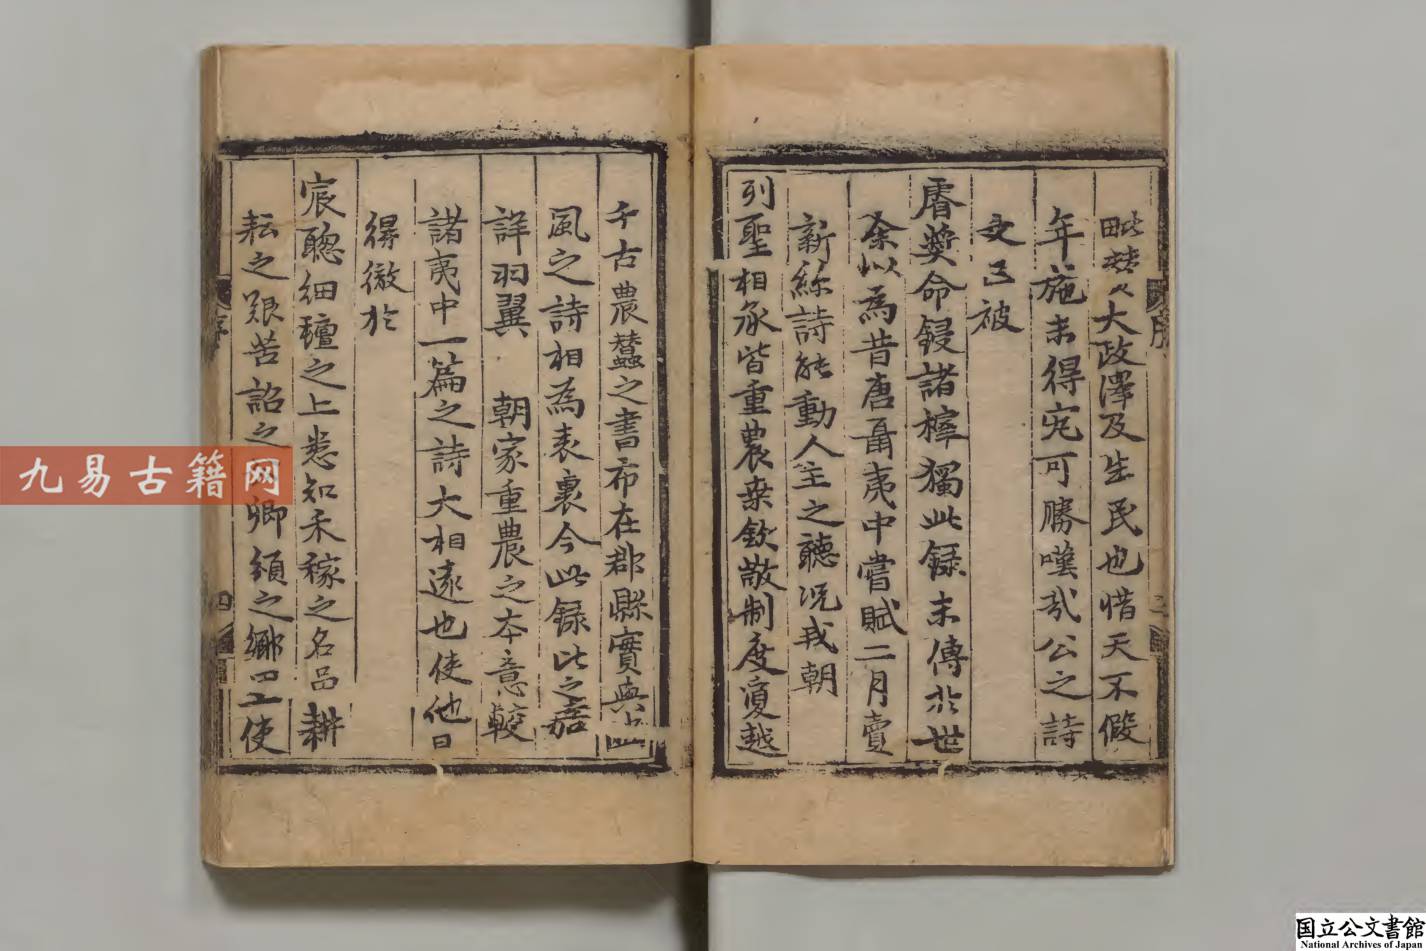 畎畝以大政澤及生民也惜天不假
年施未得究可勝嘆哉公之詩
文已被
睿奬命鋟諸梓獨此録未傳於世
余以為昔唐聶夷中嘗賦二月賣
新絲詩能動人主之聽況我朝
列聖相承皆重農桒欽散制度敻越
千古農蠶之書布在郡縣實與豳
風之詩相為表裏今此録此之嘉
詳羽翼 朝家重農之本意較
諸夷中一篇之詩大相遠也使他日
得徹於
宸聰細氊之上悉知禾稼之名品耕
耘之艱苦詔之卿頒之鄉曰工使
序
四
九易古籍网
国立公文書館
National Archives of Japan